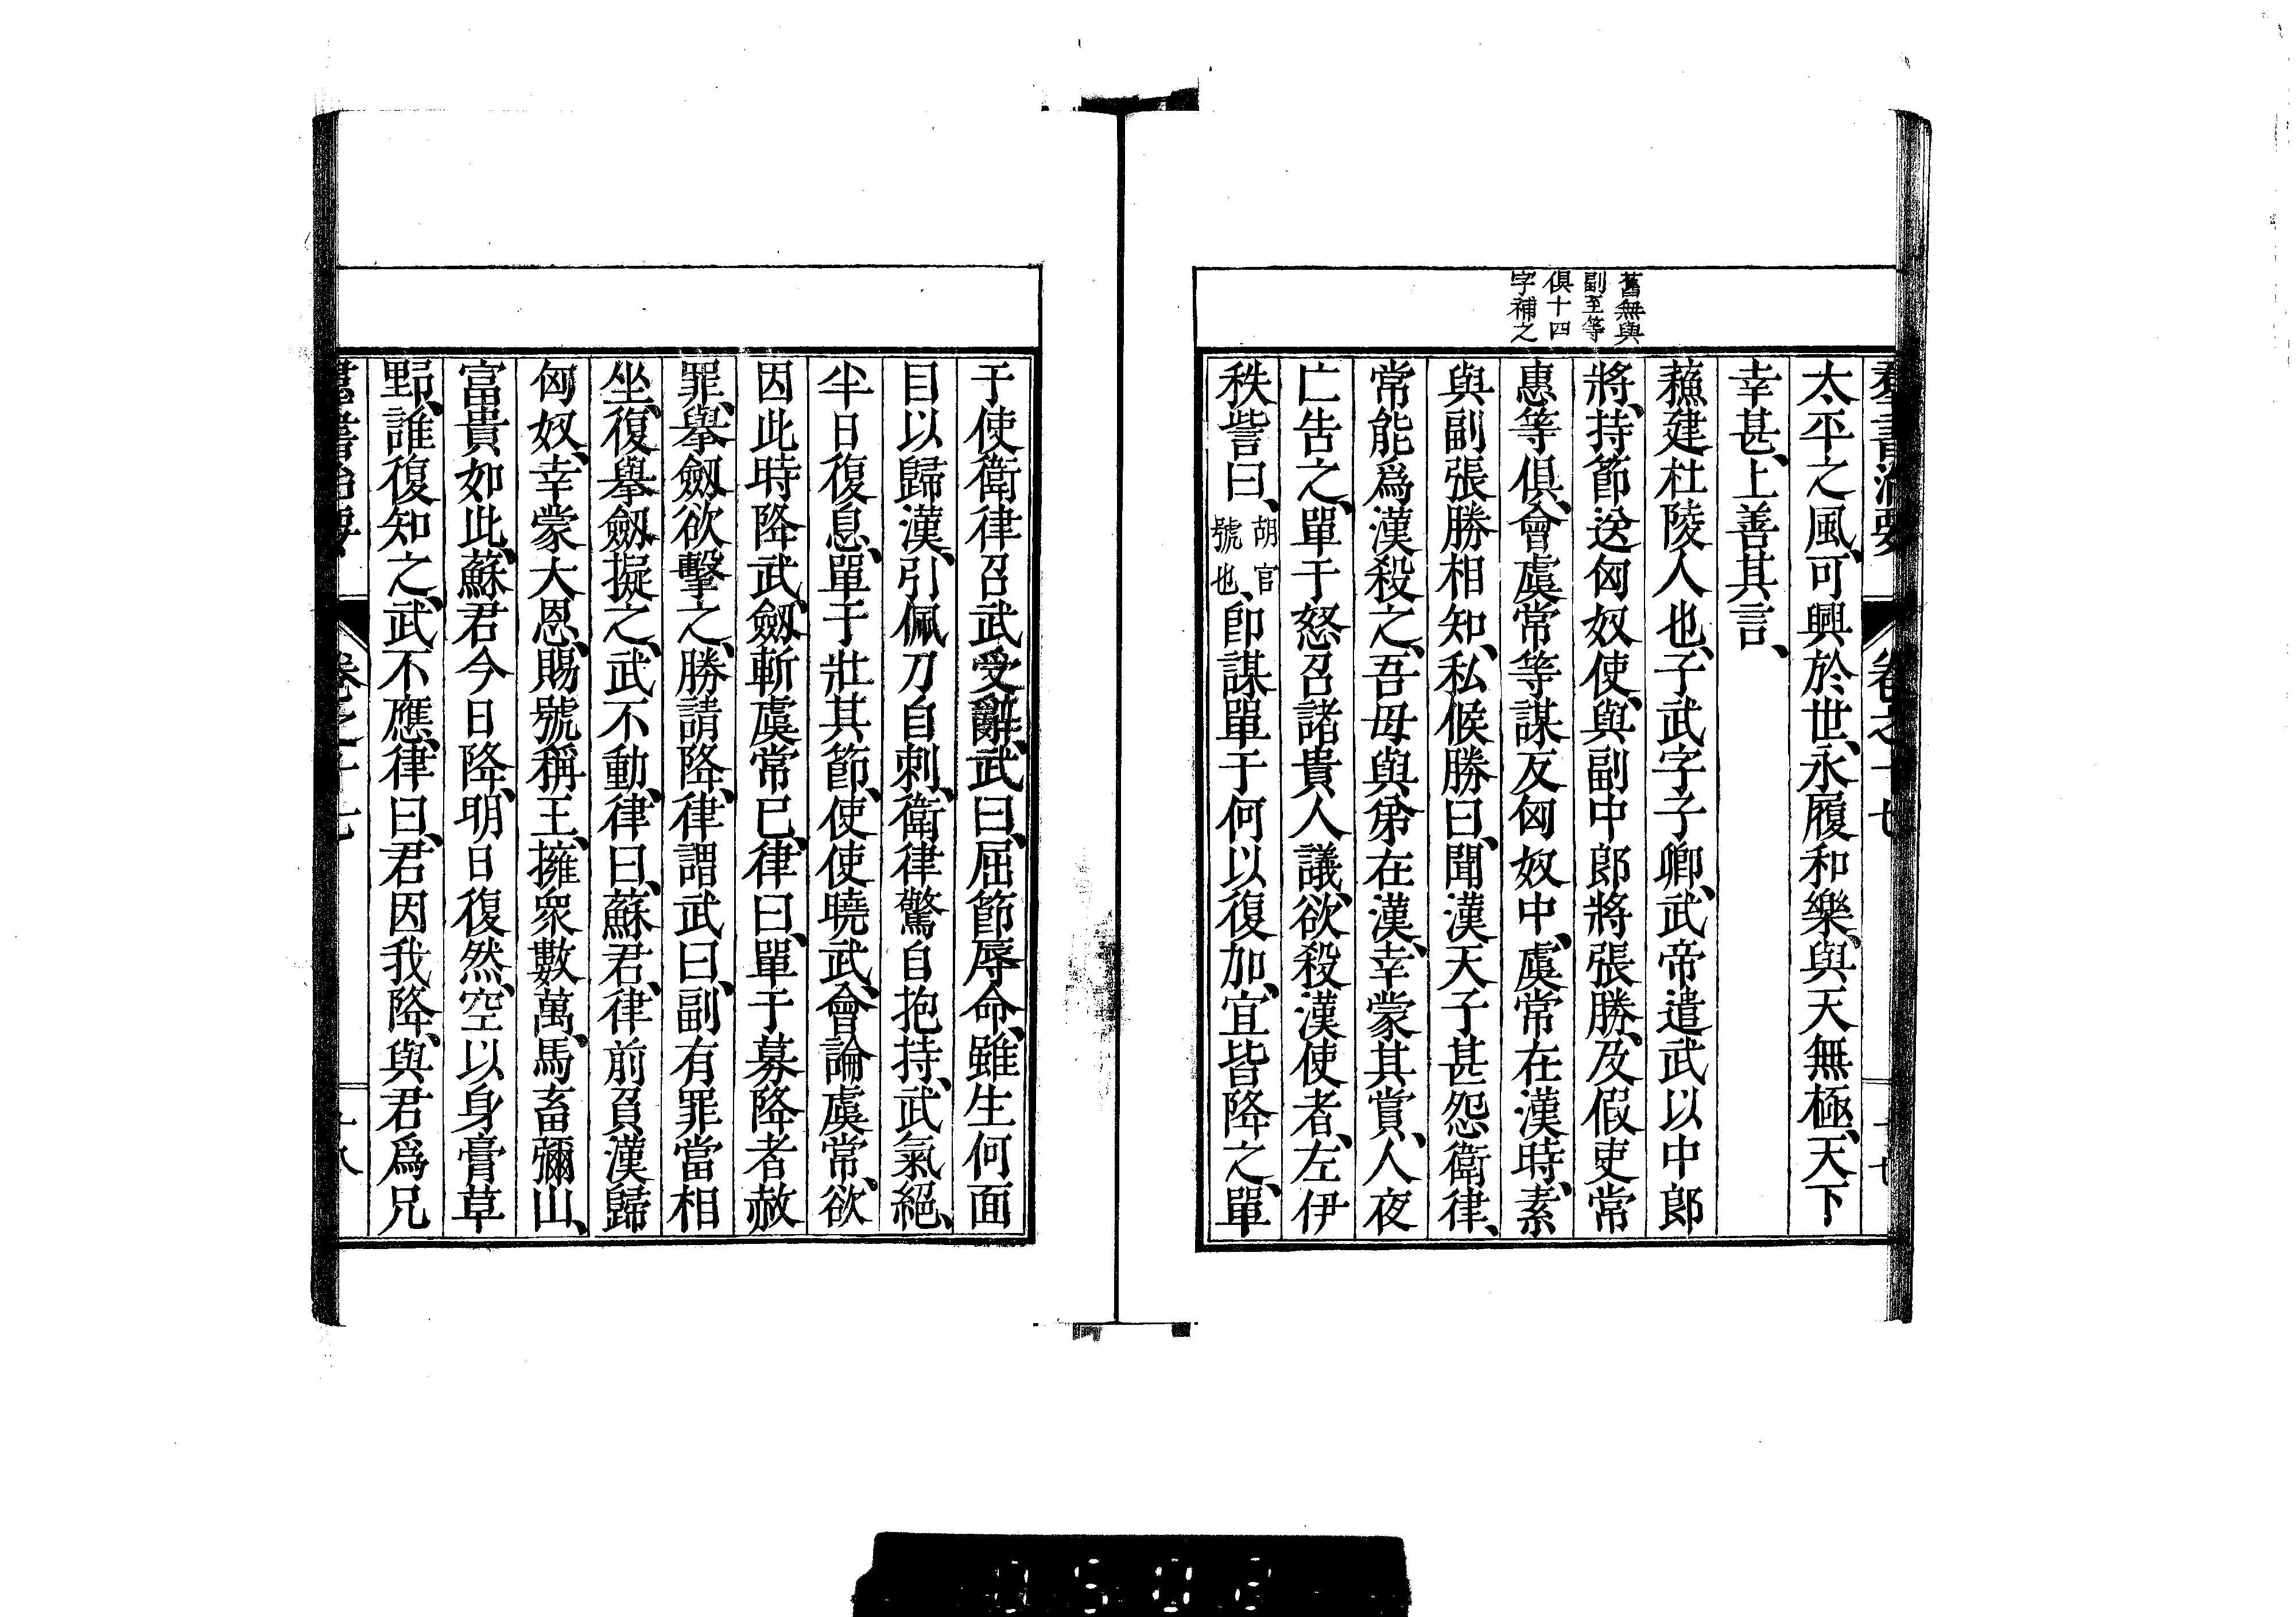 舊無與
副至等
俱十四
字補之
羣書治要 卷之十七 十七
太平之風、可興於世、永履和樂、與天無極、天下
幸甚、上善其言、
蘓建杜陵人也、子武字子卿、武帝遣武以中郎
將、持節送匈奴使、與副中郎將張勝、及假吏常
惠等俱、會虞常等謀反匈奴中、虞常在漢時、素
與副張勝相知、私候勝曰、聞漢天子甚怨衛律、
常能爲漢殺之、吾母與弟在漢、幸蒙其賞、人夜
亡告之、單于怒召諸貴人議、欲殺漢使者、左伊
秩訾曰、胡官號也、卽謀單于何以復加、宜皆降之、單
于使衛律召武受辭、武曰、屈節辱命、雖生何面
目以歸漢、引佩刀自刺、衛律驚自抱持、武氣絕、
半日復息、單于壯其節、使使曉武、會論虞常、欲
因此時降武、劔斬虞常已、律曰、單于募降者赦
罪、擧劔欲擊之、勝請降、律謂武曰、副有罪當相
坐、復擧劔擬之、武不動、律曰、蘇君、律前負漢歸
匈奴、幸蒙大恩、賜號稱王、擁衆數萬、馬畜彌山、
富貴如此、蘇君今日降、明日復然、空以身膏草
野、誰復知之、武不應、律曰、君因我降、與君爲兄
羣書治要 卷之十七 十八